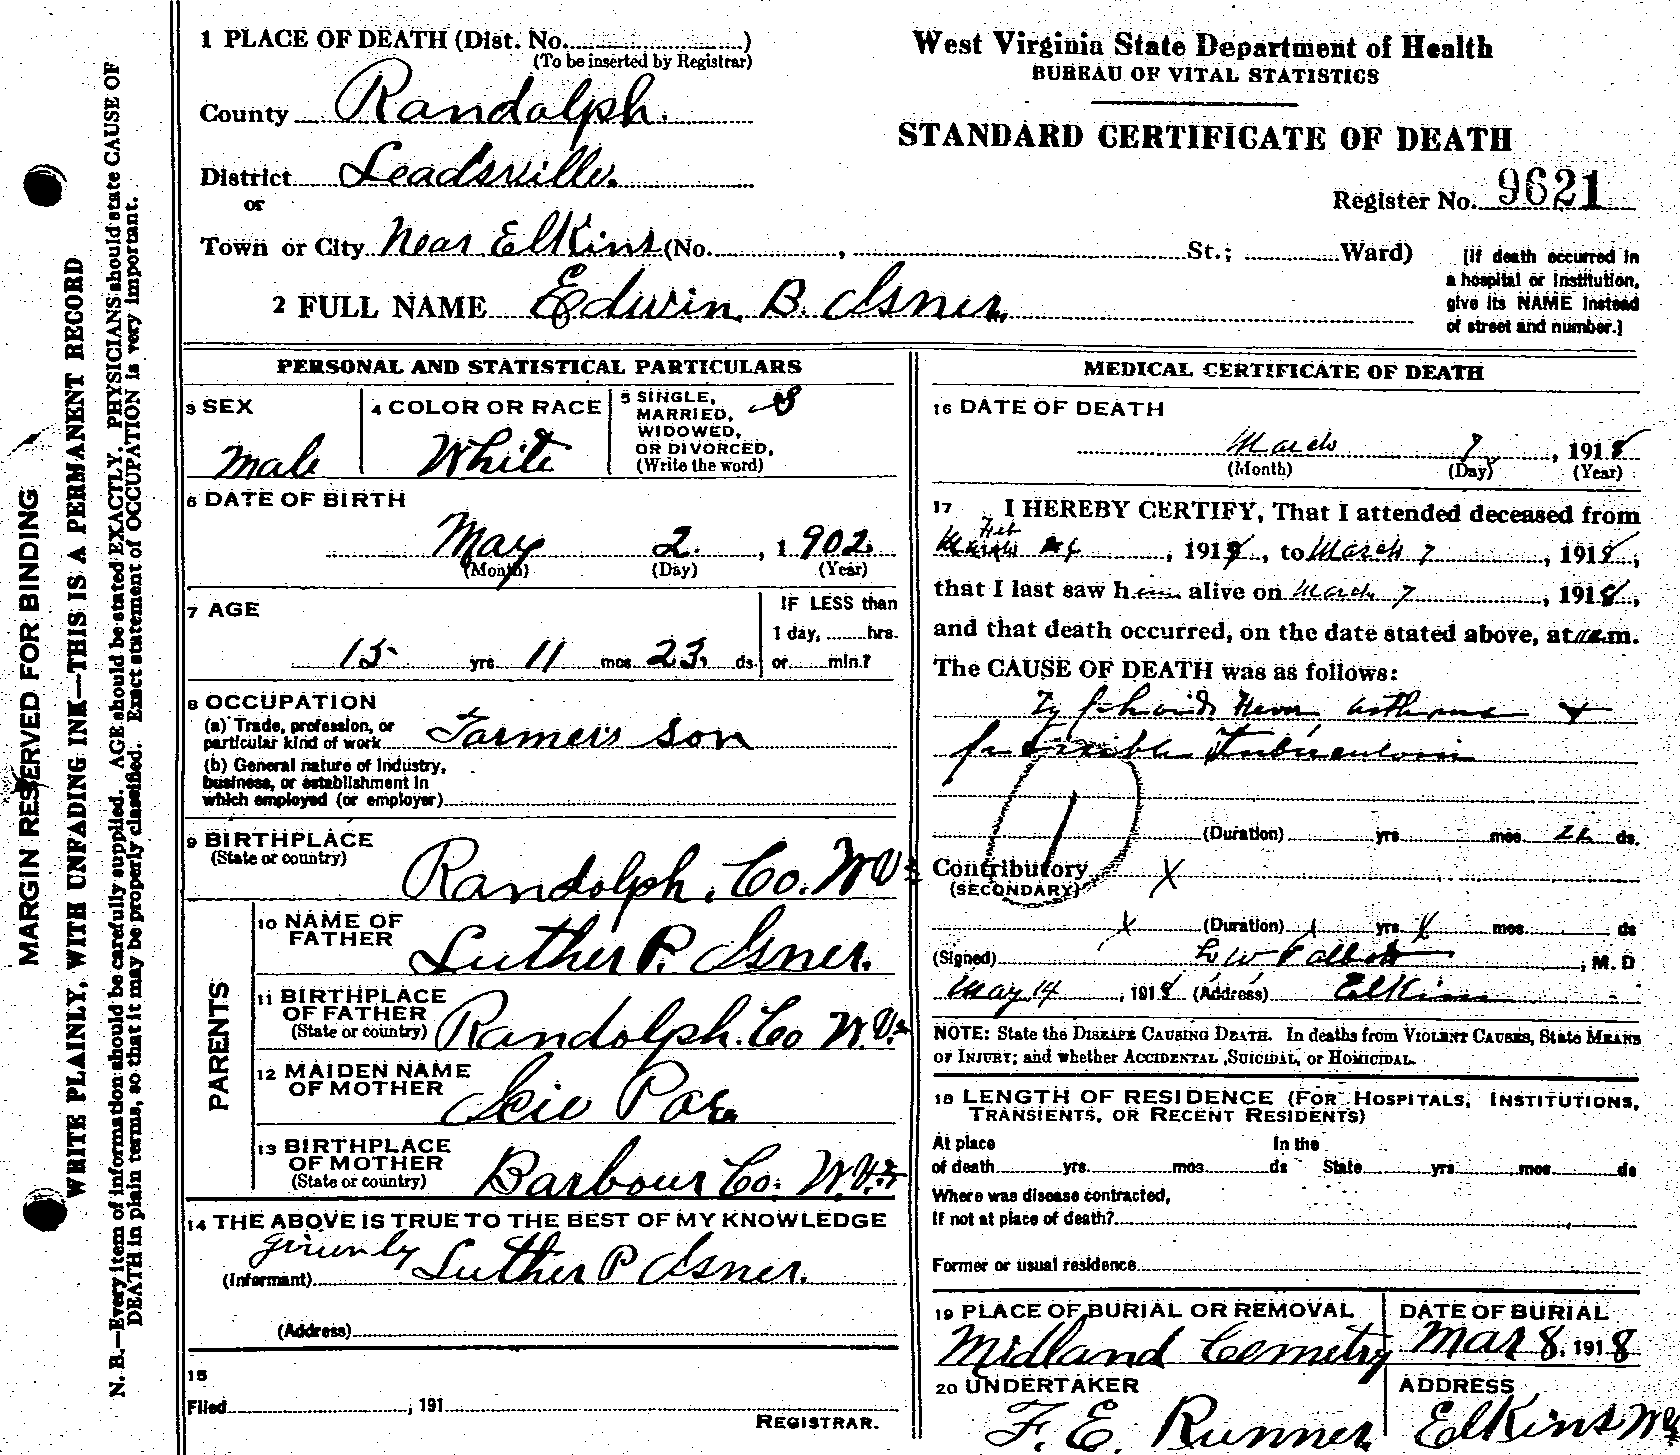 MARGIN RESERVED FOR BINDING
WRITE PLAINLY, WITH UNFADING INK—THIS IS A PERMANENT RECORD
N. B.—Every item of information should be carefully supplied. AGE should be stated EXACTLY. PHYSICIANS should state CAUSE OF
DEATH in plain terms, so that it may be properly classified. Exact statement of OCCUPATION is very important.
1 PLACE OF DEATH (Dist. No. )
(To be inserted by Registrar)
County Randolph.
District Leadsville.
or
Town or City Near Elkins (No. , St.; Ward)
West Virginia State Department of Health
BUREAU OF VITAL STATISTICS
STANDARD CERTIFICATE OF DEATH
Register No. 9621
[If death occurred in
a hospital or institution,
give its NAME instead
of street and number.]
2 FULL NAME Edwin B. Isner.
PERSONAL AND STATISTICAL PARTICULARS
3 SEX
Male
4 COLOR OR RACE
White
5 SINGLE,
MARRIED,
WIDOWED,
OR DIVORCED,
(Write the word)
S
6 DATE OF BIRTH
May 2. , 1902.
(Month) (Day) (Year)
7 AGE
15 yrs 11 mos 23. ds.
IF LESS than
1 day, hrs.
or min.?
8 OCCUPATION
(a) Trade, profession, or
particular kind of work Farmers son
(b) General nature of industry,
business, or establishment in
which employed (or employer)
9 BIRTHPLACE
(State or country)
Randolph. Co. W Va
PARENTS
10 NAME OF
FATHER
Luther P. Isner.
11 BIRTHPLACE
OF FATHER
(State or country) Randolph. Co W. Va
12 MAIDEN NAME
OF MOTHER
Icie Poe
13 BIRTHPLACE
OF MOTHER
(State or country) Barbour Co. W. Va
14 THE ABOVE IS TRUE TO THE BEST OF MY KNOWLEDGE
given by
(Informant) Luther P Isner.
(Address)
15
Filed , 191
REGISTRAR.
MEDICAL CERTIFICATE OF DEATH
16 DATE OF DEATH
March 7 , 1918
(Month) (Day) (Year)
17 I HEREBY CERTIFY, That I attended deceased from
Feb
March , 1918, to March 7 , 1918,
that I last saw him alive on March 7 , 1918,
and that death occurred, on the date stated above, at m.
The CAUSE OF DEATH was as follows:
Typhoid Fever asthma +
possible Tuberculosis
1
(Duration) yrs mos ds.
Contributory X
(SECONDARY)
x (Duration) x yrs x mos ds
(Signed) L W Talbott , M. D
May 14 , 1918 (Address) Elkins
NOTE: State the DISEASE CAUSING DEATH. In deaths from VIOLENT CAUSES, State MEANS
OF INJURY; and whether ACCIDENTAL, SUICIDAL, or HOMICIDAL.
18 LENGTH OF RESIDENCE (FOR HOSPITALS, INSTITUTIONS,
TRANSIENTS, OR RECENT RESIDENTS)
At place In the
of death yrs. mos. ds State yrs. mos. ds
Where was disease contracted,
If not at place of death?
Former or usual residence
19 PLACE OF BURIAL OR REMOVAL
Midland Cemetry
DATE OF BURIAL
Mar 8. 1918
20 UNDERTAKER
F. E. Runner
ADDRESS
Elkins W Va